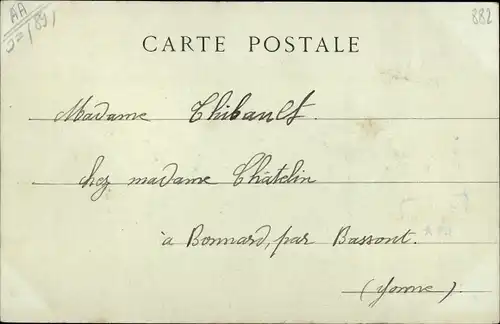 AA
882
CARTE POSTALE
Madame Thibault.
chez madame Châtelin
à Bonnard, par Bassont.
(Yonne).